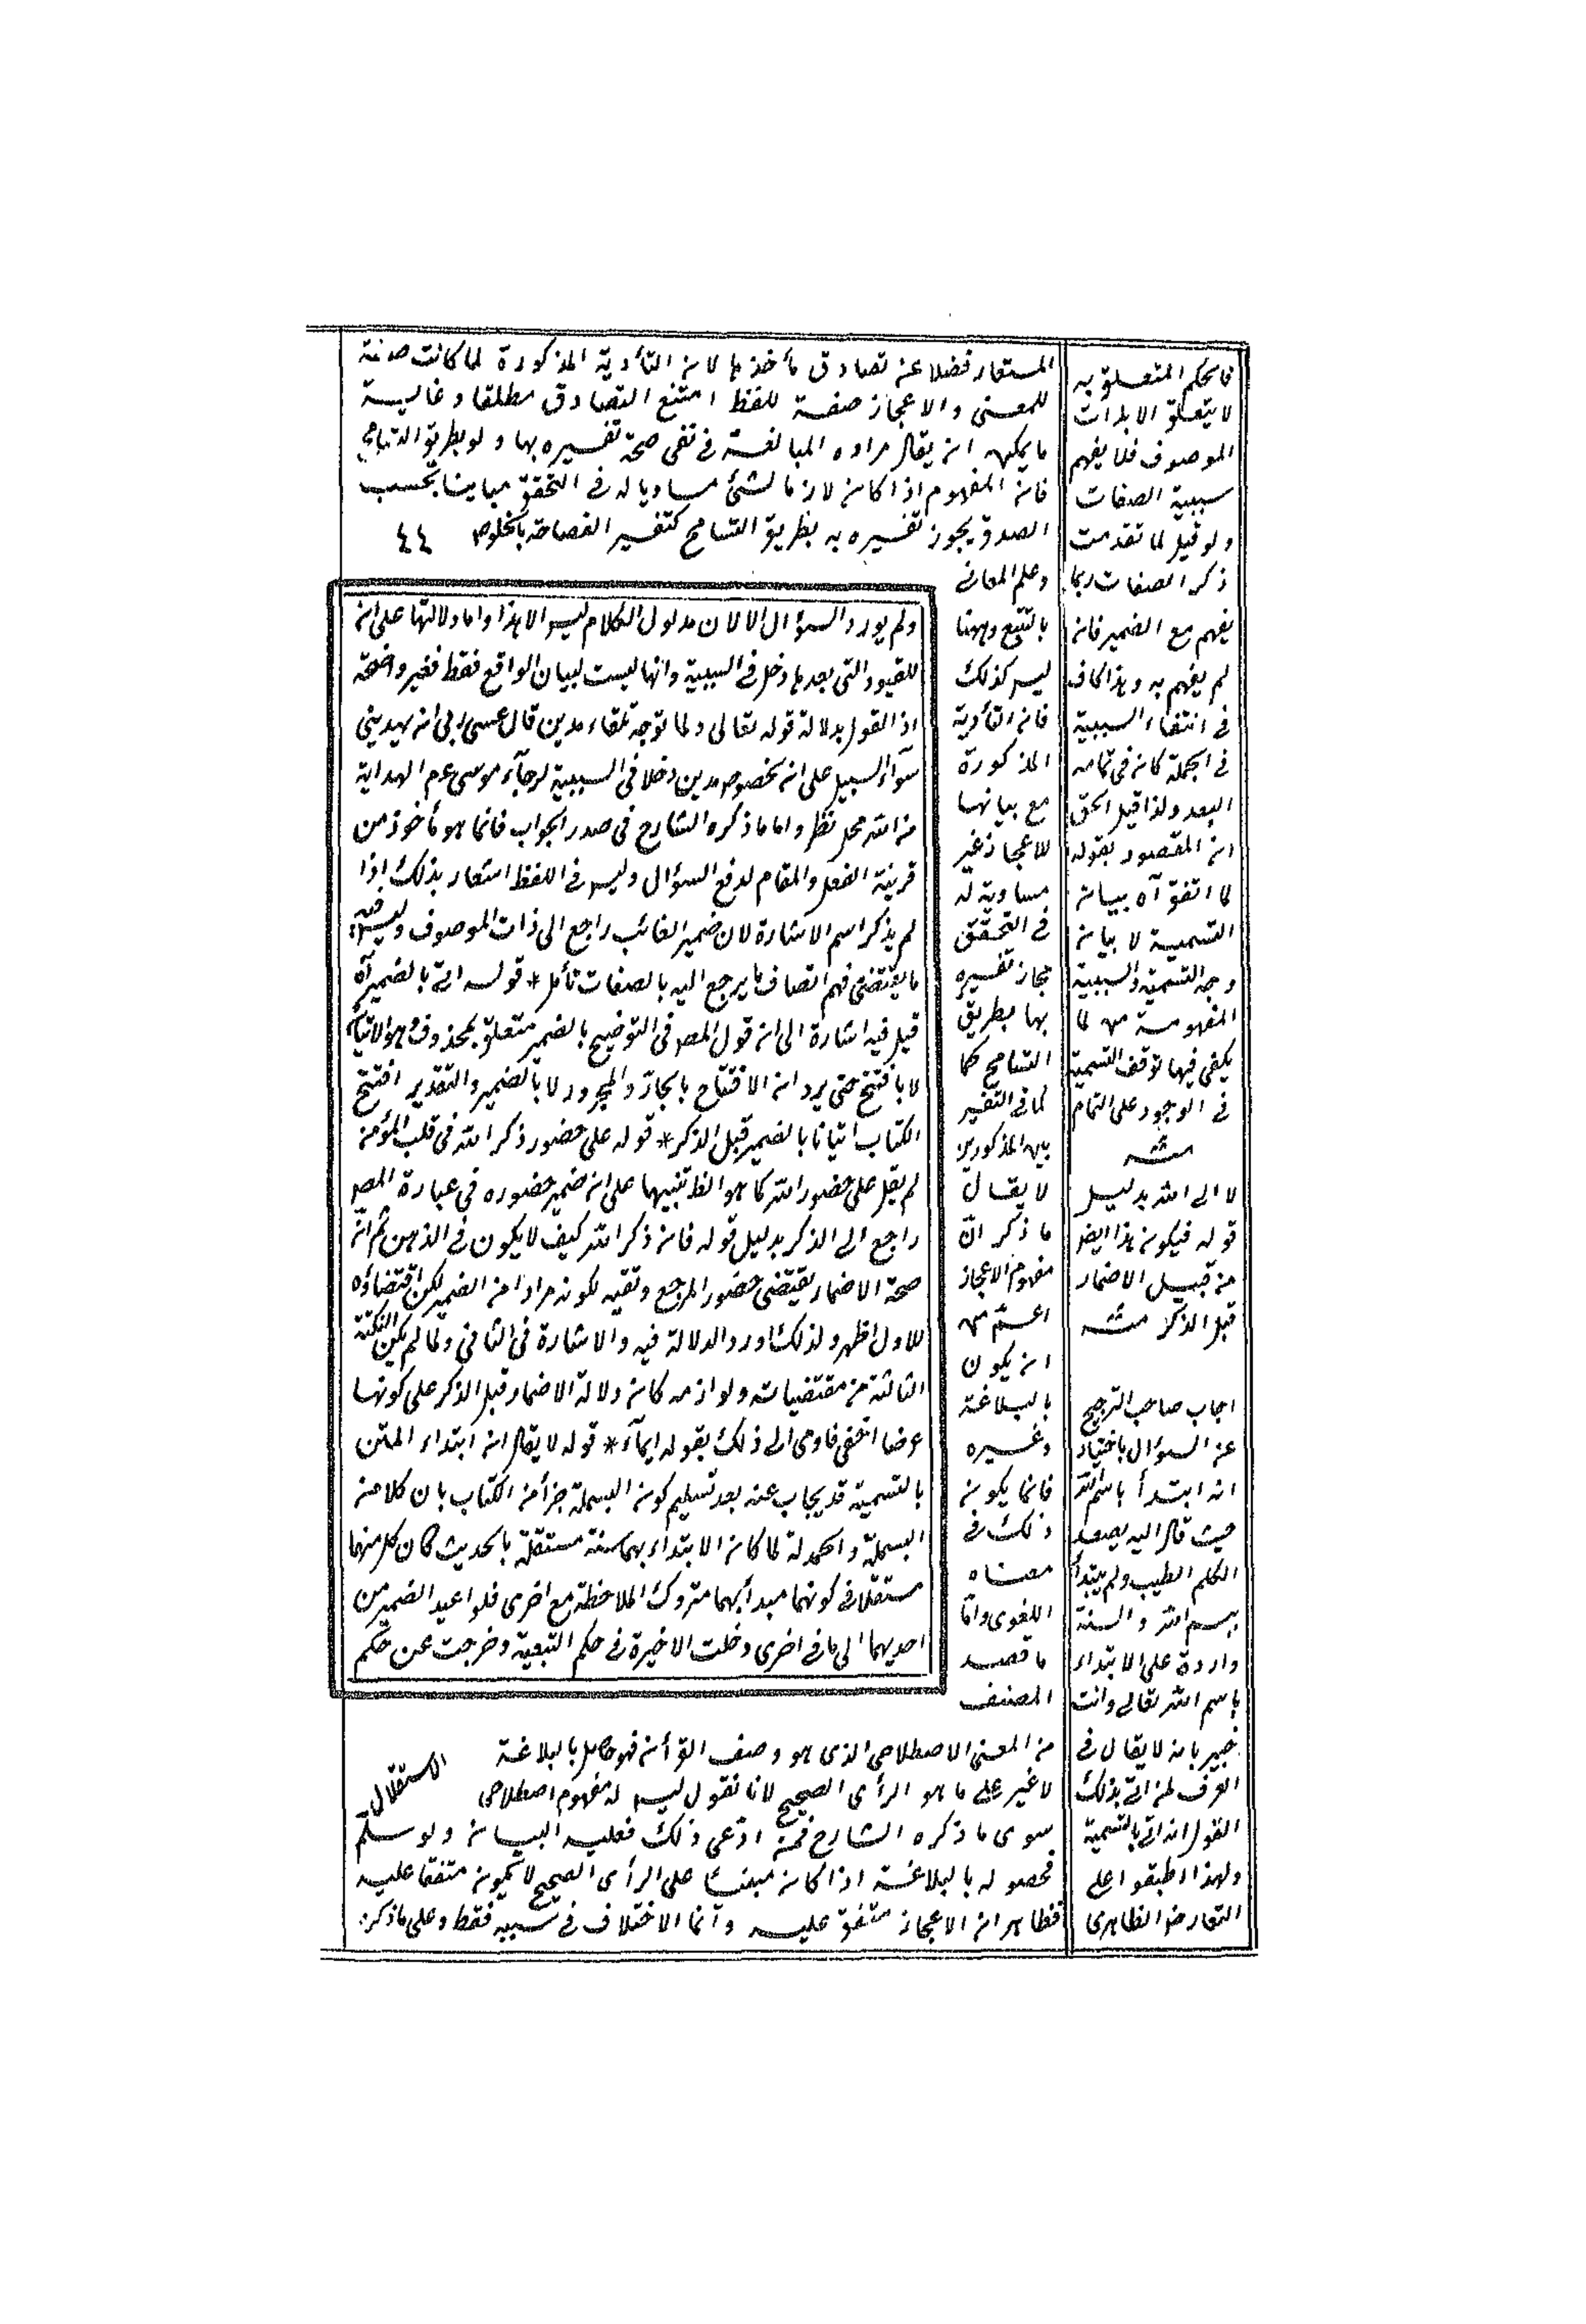 المستعار فضلا عن تصادق مأخذيها لان التأدية المذكورة لما كانت صفة
للمعنى والاعجاز صفة للفظ امتنع التصادق مطلقا وغاية
ما يمكن ان يقال مراده المبالغة فى نفى صحة تفسيره بها ولو بطريق التسامح
فان المفهوم اذا كان لازما لشئ مساويا له فى التحقق مباينا بحسب
الصدق يجوز تفسيره به بطريق التسامح كتفسير الفصاحة بالخلوص ٤٤
وعلم المعانى
بالتتبع وههنا
ليس كذلك
فان التأدية
المذكورة
مع بيانها
للاعجاز غير
مساوية له
فى التحقق
مجاز تفسيره
بها بطريق
التسامح كما
لما فى التفسير
بين المذكورين
لا يقال
ما ذكر ان
مفهوم الاعجاز
اعم من
ان يكون
بالبلاغة
وغيره
فانما يكون
ذلك فى
معناه
اللغوى واما
ما قصد
المصنف
من المعنى الاصطلاحى الذى هو وصف القرأن فهو حاصل بالبلاغة
لا غير على ما هو الرأى الصحيح لانا نقول ليس له مفهوم اصطلاحى
سوى ما ذكره الشارح فمن ادعى ذلك فعليه البيان ولو سلم
فحصوله بالبلاغة اذا كان مبنيا على الرأى الصحيح لا يكون متفقا عليه
فظاهر ان الاعجاز متفق عليه وانما الاختلاف فى سببه فقط وعلى ما ذكر
ولم يورد السؤال الا لان مدلول الكلام ليس الا هذا واما دلالتها على ان
للقيود التى بعدها دخل فى السببية وانها ليست لبيان الواقع فقط فغير واضحة
اذ القول بدلالة قوله تعالى ولما توجه تلقاء مدين قال عسى ربى ان يهدينى
سوآء السبيل على ان بخصوص مدين دخلا فى السببية لرجآء موسى عم الهداية
من الله محل نظر واما ما ذكره الشارح فى صدر الجواب فانما هو مأخوذ من
قرينة الفعل والمقام لدفع السؤال وليس فى اللفظ اشعار بذلك اذا
لم يذكر اسم الاشارة لان ضمير الغائب راجع الى ذات الموصوف وليس فيه
ما يقتضى فهم اتصاف ما يرجع اليه بالصفات تأمل * قوله اتى بالضمير آه
قيل فيه اشارة الى ان قول المص فى التوضيح بالضمير متعلق بمحذوف وهو الاتيان
لا بافتتح حتى يرد ان الافتتاح بالجار والمجرور لا بالضمير والتقدير افتتح
الكتاب اتيانا بالضمير قبل الذكر * قوله على حضور ذكر الله فى قلب المؤمن
لم يقل على حضور الله كما هو الظ تنبيها على ان ضمير حضوره فى عبارة المص
راجع الى الذكر بدليل قوله فان ذكر الله كيف لا يكون فى الذهن ثم ان
صحة الاضمار يقتضى حضور المرجع وتقيه لكونه مرادا من الضمير لكن اقتضاؤه
للاول اظهر ولذلك اورد الدلالة فيه والاشارة فى الثانى ولما لم يكن النكتة
الثالثة من مقتضياته ولوازمه كان دلالة الاضمار قبل الذكر على كونها
غرضا اخفى فاومى الى ذلك بقوله ايمآء * قوله لا يقال ان ابتداء المتن
بالتسمية قد يجاب عنه بعد تسليم كون البسملة جزأ من الكتاب بان كلا من
البسملة والحمدلة لما كان الابتداء بهما سنة مستقلة بالحديث كان كل منهما
مستقلا فى كونهما مبدأ بهما متروك الملاحظة مع اخرى فلو اعيد الضمير من
احديهما الى ما فى اخرى دخلت الاخيرة فى حكم التبعية وخرجت عن حكم
الاستقلال
فالحكم المتعلق به
لا يتعلق الا بذات
الموصوف فلا يفهم
سببية الصفات
ولو قيل لما تقدمت
ذكر الصفات ربما
يفهم مع الضمير فان
لم يفهم به وهذا كاف
فى انتفاء السببية
فى الجملة كان فى تمامه
البعد ولذا قيل الحق
ان المقصود بقوله
لما اتفق آه بيان
التسمية لا بيان
وجه التسمية والسببية
المفهومة من لما
يكفى فيها توقف التسمية
فى الوجود على التمام
منه
لا الى الله بدليل
قوله فيكون هذا ايضا
من قبيل الاضمار
قبل الذكر منه
اجاب صاحب الترجيح
عن السؤال باختيار
انه ابتدأ باسم الله
حيث قال اليه يصعد
الكلم الطيب ولم يبتدأ
ببسم الله والسنة
واردة على الابتداء
باسم الله تعالى وانت
خبير بان لا يقال فى
العرف لمن اتى بذلك
القول انه اتى بالتسمية
ولهذا اطبقوا على
التعارض الظاهرى